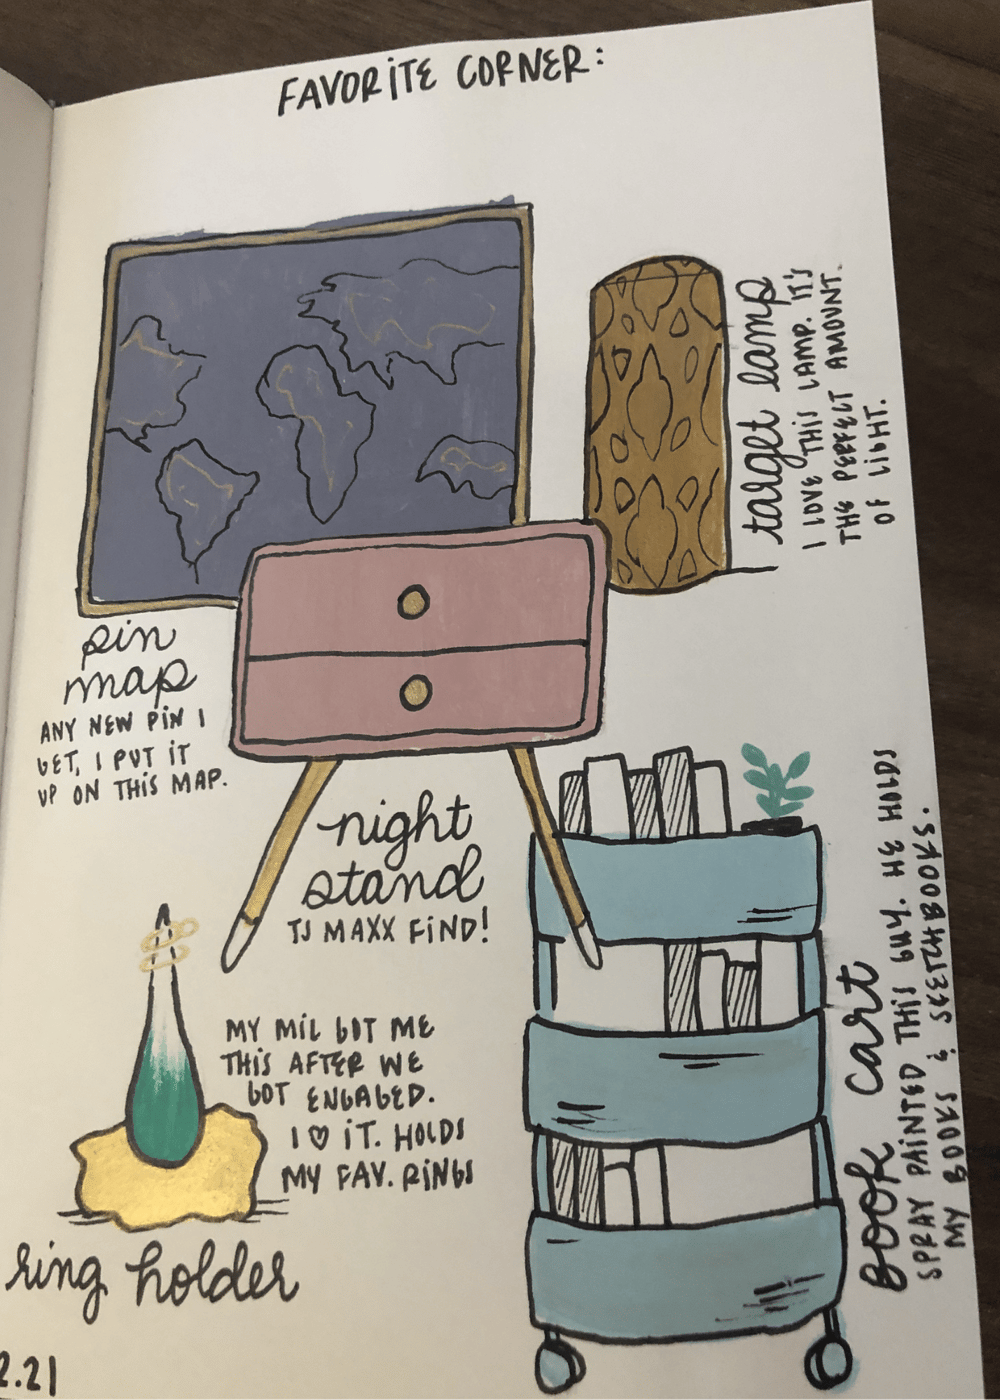 FAVORITE CORNER:
target lamp
I LOVE THIS LAMP. IT'S
THE PERFECT AMOUNT
OF LIGHT.
pin
map
ANY NEW PIN I
GET, I PUT IT
UP ON THIS MAP.
night
stand
TJ MAXX FIND!
MY MIL GOT ME
THIS AFTER WE
GOT ENGAGED.
I ♡ IT. HOLDS
MY FAV. RINGS
ring holder
book cart
SPRAY PAINTED THIS GUY. HE HOLDS
MY BOOKS & SKETCHBOOKS.
2.21